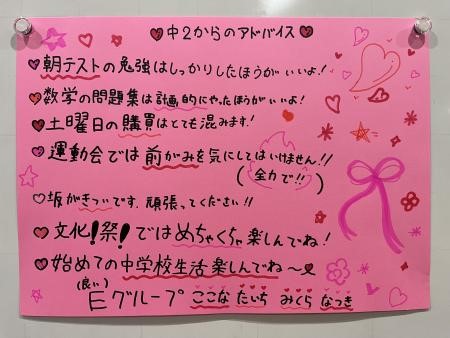 中2からのアドバイス
朝テストの勉強はしっかりしたほうがいいよ!
数学の問題集は計画的にやったほうがいいよ!
土曜日の購買はとても混みます!
運動会では前がみを気にしてはいけません!!
(全力で!!)
坂がきついです。頑張ってください!!
文化!祭!ではめちゃくちゃ楽しんでね!
始めての中学校生活楽しんでね〜
(良い)
Eグループ ここな たいち みくら なつき